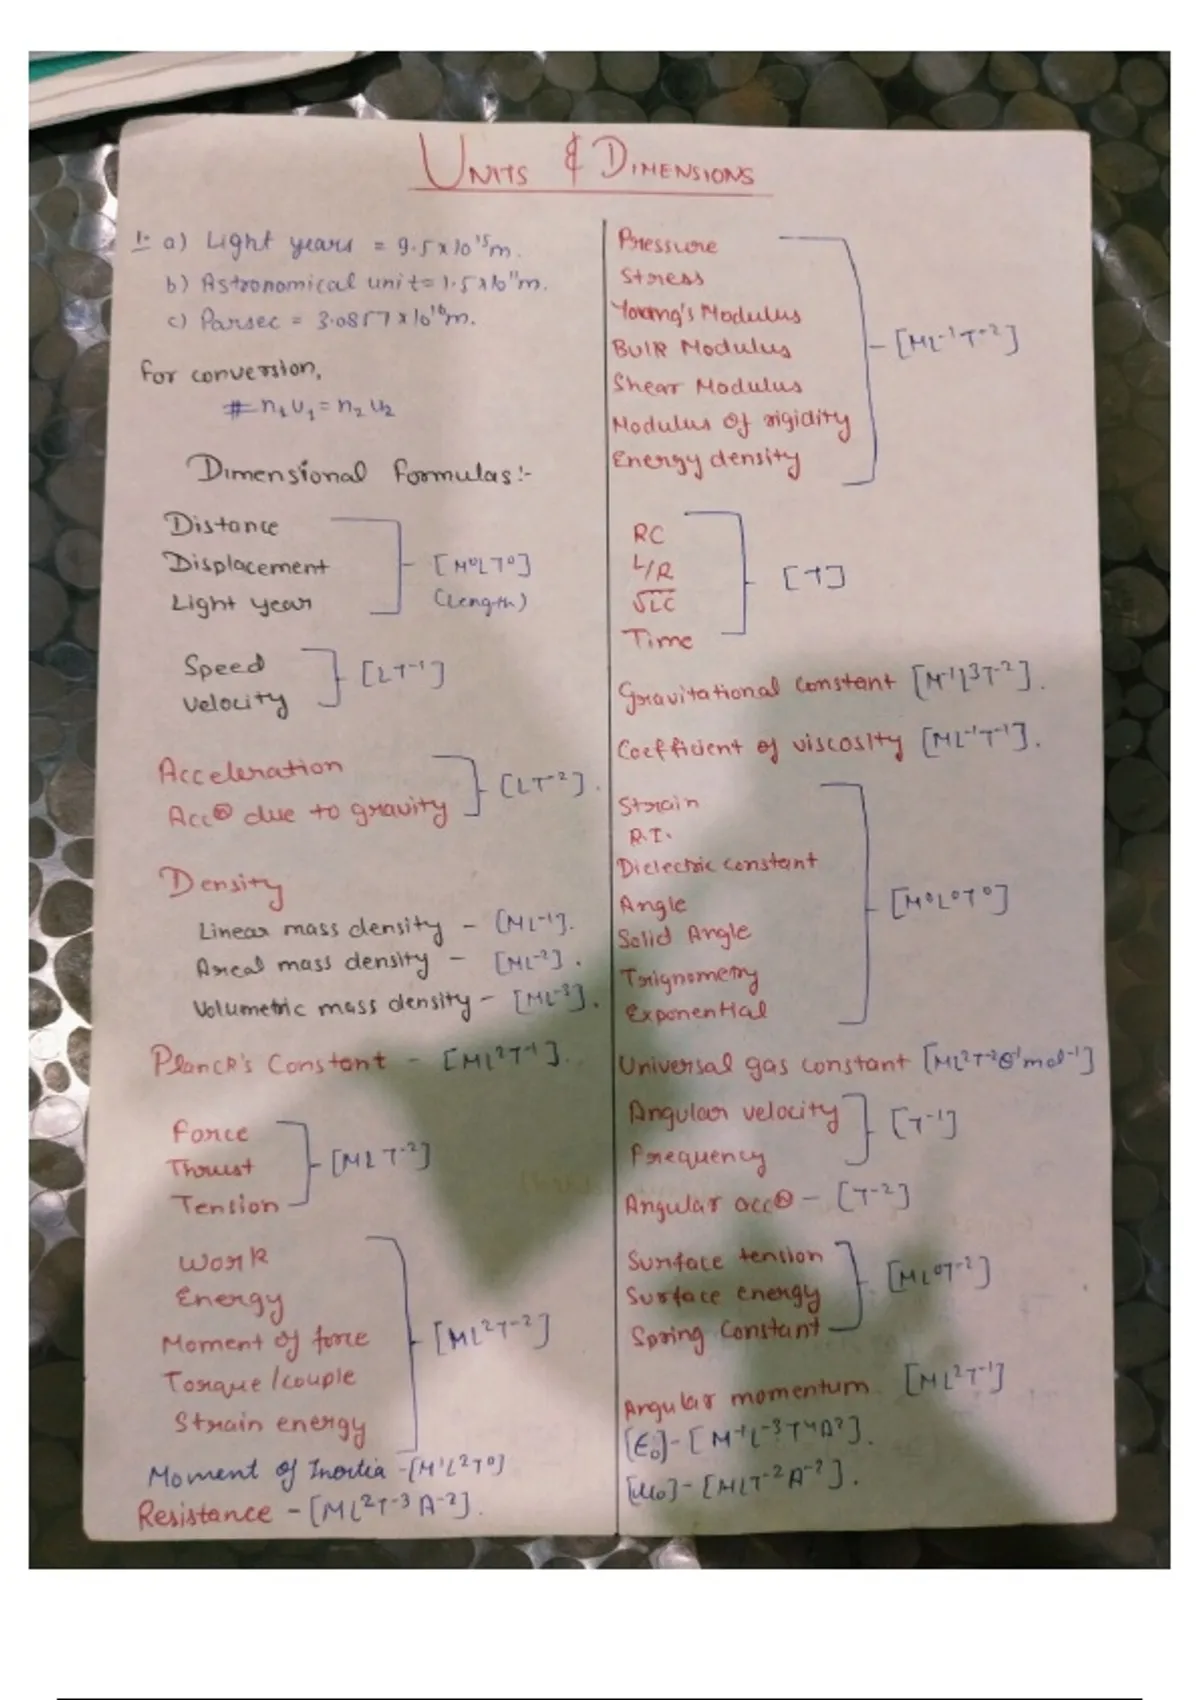 UNITS & DIMENSIONS
1. a) Light years = 9.5 x 10¹⁵m.
b) Astronomical unit = 1.5 x 10¹¹m.
c) Parsec = 3.0857 x 10¹⁶m.
For conversion,
# n₁ u₁ = n₂ u₂
Dimensional Formulas:-
Distance
Displacement
Light year
[M⁰LT⁰]
(Length)
Speed
Velocity
[LT⁻¹]
Acceleration
Accⁿ due to gravity
[LT⁻²].
Density
Linear mass density - [ML⁻¹].
Areal mass density - [ML⁻²].
Volumetric mass density - [ML⁻³].
Planck's Constant - [ML²T⁻¹].
Force
Thrust
Tension
[MLT⁻²]
Work
Energy
Moment of force
Torque/couple
Strain energy
[ML²T⁻²]
Moment of Inertia -[M¹L²T⁰]
Resistance - [ML²T⁻³A⁻²].
Pressure
Stress
Young's Modulus
Bulk Modulus
Shear Modulus
Modulus of rigidity
Energy density
[ML⁻¹T⁻²]
RC
L/R
√LC
Time
[T]
Gravitational Constant [M⁻¹L³T⁻²].
Coefficient of viscosity [ML⁻¹T⁻¹].
Strain
R.I.
Dielectric constant
Angle
Solid Angle
Trignometry
Exponential
[M⁰L⁰T⁰]
Universal gas constant [ML²T⁻²θ⁻¹mol⁻¹]
Angular velocity
Frequency
[T⁻¹]
Angular accⁿ - [T⁻²]
Surface tension
Surface energy
Spring Constant
[ML⁰T⁻²]
Angular momentum [ML²T⁻¹]
[ε₀]- [M⁻¹L⁻³T⁴A²].
[μ₀]- [MLT⁻²A⁻²].